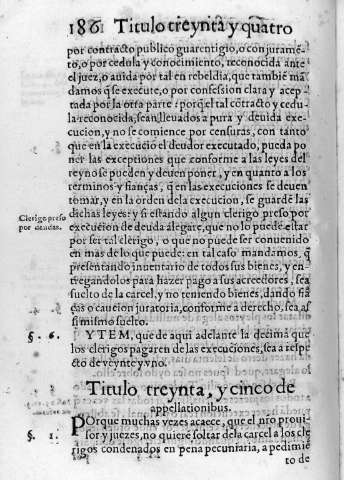 186 Titulo treynta y quatro
por contracto publico guarentigio, o con jurame̅-
to, o por cedula y conocimiento, reconocida ante
el juez, o auida por tal en rebeldia, que tambie̅ ma̅
damos q̅ se execute, o por confession clara y acep-
tada por la otra parte: porq̅ el tal co̅tracto y cedu-
la reconocida, sea̅ lleuados a pura y deuida exe-
cucion, y no se comience por censuras, con tanto
que en la execucio̅ el deudor executado, pueda po
ner las exceptiones que conforme a las leyes del
reyno se pueden y deuen poner, y en quanto a los
terminos y fianças, q̅ en las execuciones se deuen
tomar, y en la orden de la execucion, se guarde̅ las
dichas leyes: y si estando algun clerigo preso por
execucion de deuda alegare, que no lo puede estar
por ser tal clerigo, o que no puede ser conuenido
en mas de lo que puede: en tal caso mandamos, q̅
presentando inuentario de todos sus bienes, y en-
tregandolos para hazer pago a sus acreedores, sea
suelto de la carcel, y no teniendo bienes, dando fia̅
ças, o caucion juratoria, conforme a derecho, sea as
si mismo suelto.
Clerigo preso
por deudas.
§. 6. YTEM, que de aqui adelante la decima que
los clerigos pagaren de las execuciones, sea a respe
cto de veynte y vno.
Titulo treynta, y cinco de
appellationibus.
§. 1. POrque muchas vezes acaece, que el n̅ro proui-
sor y juezes, no quiere̅ soltar de la carcel a los cle
rigos condenados en pena pecuniaria, a pedimie̅
to de